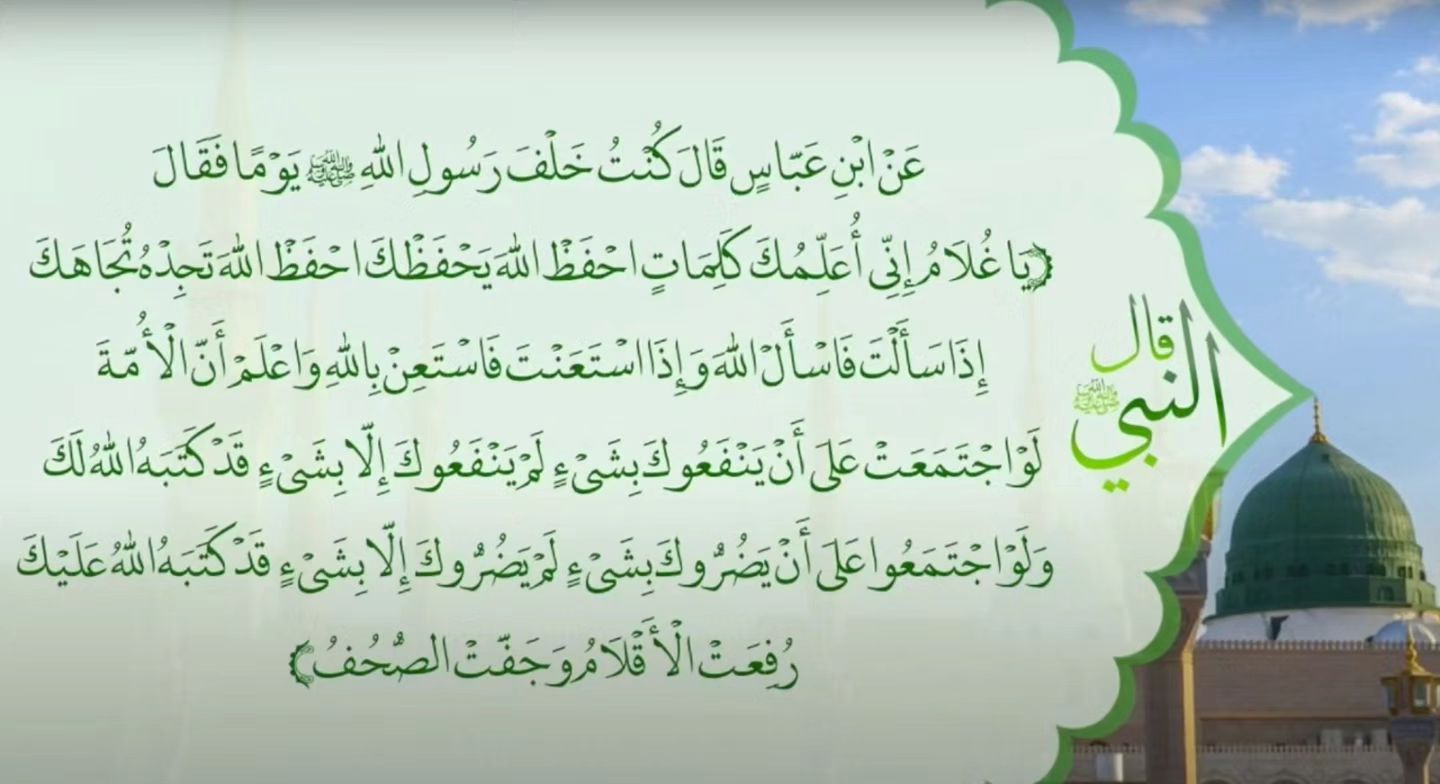 عَنْ ابْنِ عَبَّاسٍ قَالَ كُنْتُ خَلْفَ رَسُولِ اللهِ ﷺ يَوْمًا فَقَالَ
﴿يَا غُلَامُ إِنِّي أُعَلِّمُكَ كَلِمَاتٍ احْفَظْ اللهَ يَحْفَظْكَ احْفَظْ اللهَ تَجِدْهُ تُجَاهَكَ
إِذَا سَأَلْتَ فَاسْأَلْ اللهَ وَإِذَا اسْتَعَنْتَ فَاسْتَعِنْ بِاللهِ وَاعْلَمْ أَنَّ الْأُمَّةَ
لَوْ اجْتَمَعَتْ عَلَى أَنْ يَنْفَعُوكَ بِشَيْءٍ لَمْ يَنْفَعُوكَ إِلَّا بِشَيْءٍ قَدْ كَتَبَهُ اللهُ لَكَ
وَلَوْ اجْتَمَعُوا عَلَى أَنْ يَضُرُّوكَ بِشَيْءٍ لَمْ يَضُرُّوكَ إِلَّا بِشَيْءٍ قَدْ كَتَبَهُ اللهُ عَلَيْكَ
رُفِعَتْ الْأَقْلَامُ وَجَفَّتْ الصُّحُفُ﴾
قال
النبي ﷺ